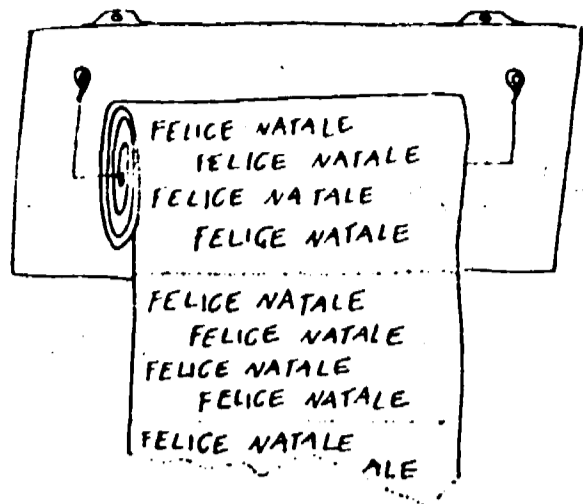 FELICE NATALE
FELICE NATALE
FELICE NATALE
FELICE NATALE
FELICE NATALE
FELICE NATALE
FELICE NATALE
FELICE NATALE
FELICE NATALE
ALE